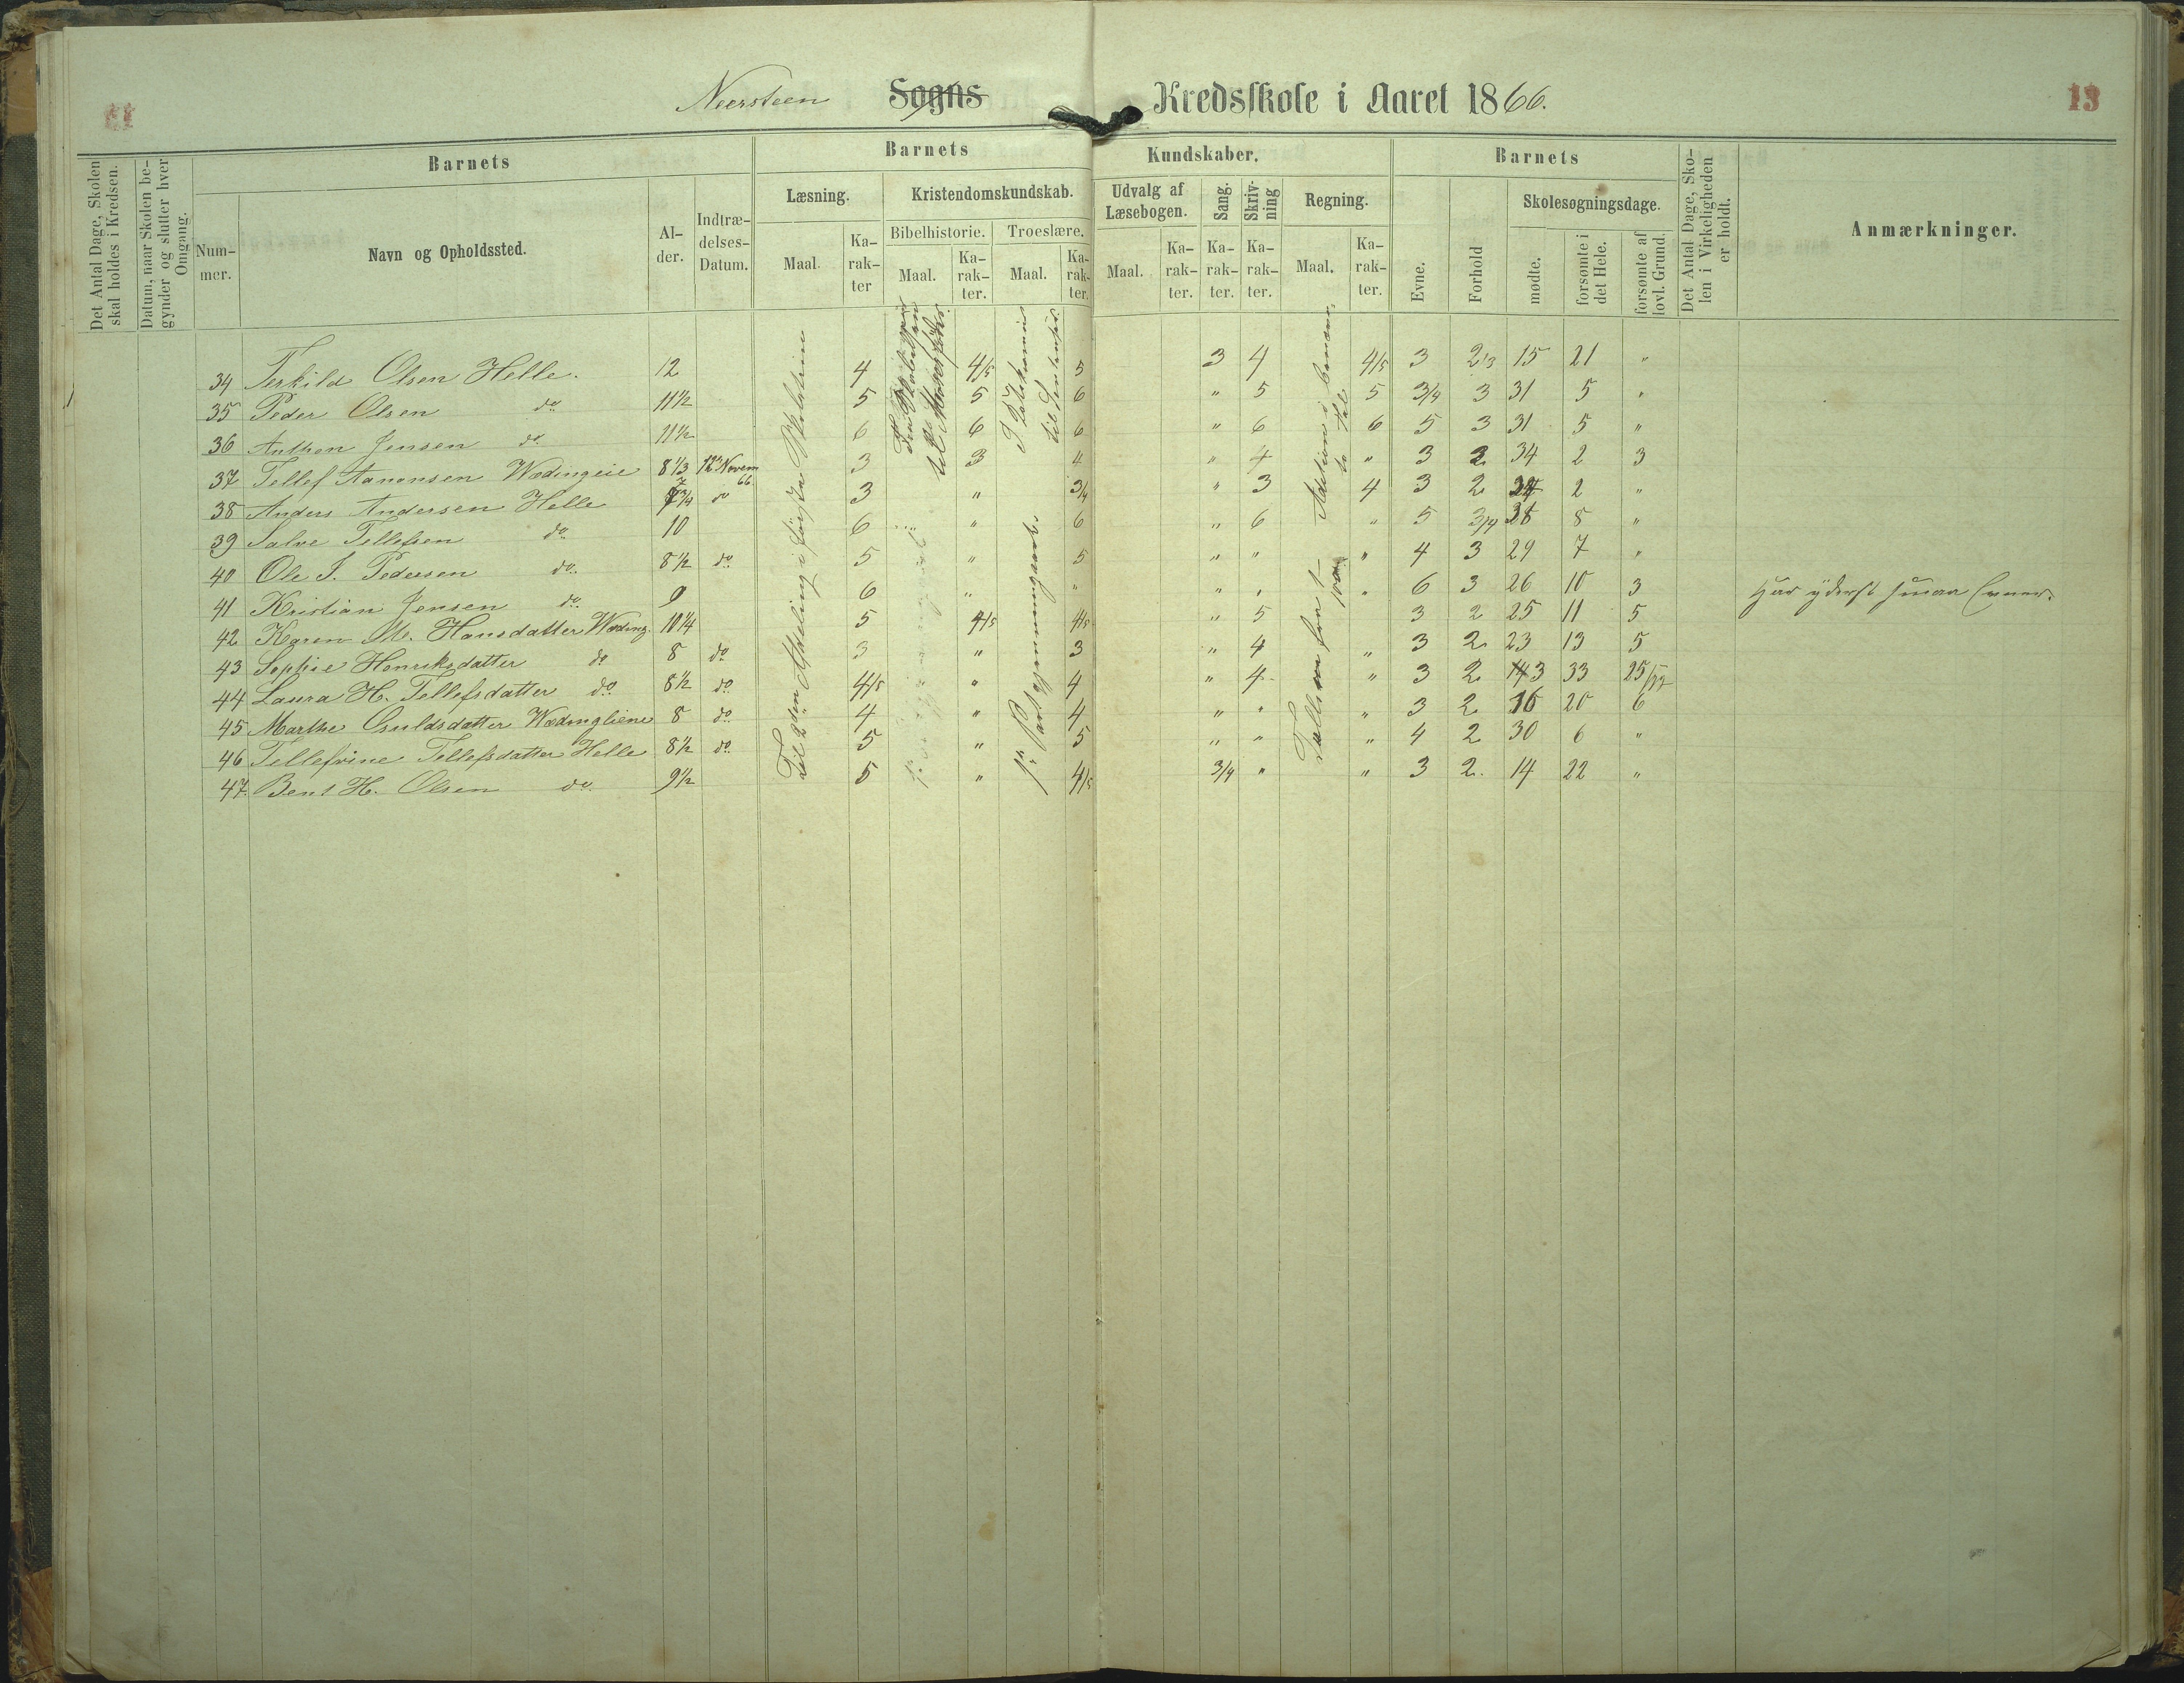 Neersteen Sogns Kredsskole i Aaret 1866.
13
Det Antal Dage, Skolen skal holdes i Kredsen.
Datum, naar Skolen begynder og slutter hver Omgang.
Barnets
Nummer.
Navn og Opholdssted.
Alder.
Indtrædelses-Datum.
Barnets Kundskaber.
Læsning.
Maal. Karakter
Kristendomskundskab.
Bibelhistorie.
Maal. Karakter.
Troeslære.
Maal. Karakter.
Udvalg af Læsebogen.
Maal. Karakter.
Sang. Karakter.
Skrivning Karakter.
Regning.
Maal. Karakter.
Barnets
Evne.
Forhold
Skolesøgningsdage.
mødte.
forsømte i det Hele.
forsømte af lovl. Grund.
Det Antal Dage, Skolen i Virkeligheden er holdt.
Anmærkninger.
34 Terkild Olsen Helle. 12 4 4/5 5 3 4 4/5 3 2/3 15 21 "
35 Peder Olsen do 11 1/2 5 5 6 " 5 5 3/4 3 31 5 "
36 Anthon Jensen do 11 1/2 6 6 6 " 6 6 5 3 31 5 "
37 Tellef Aanonsen Wædingeie 8 1/3 12 Novem 66 3 3 4 " 4 " 3 2 34 2 3
38 Anders Andersen Helle 7 3/4 do 3 " 3/4 " 3 4 3 2 34 2 "
39 Salve Tellefsen do 10 6 " 6 " 6 " 5 3/4 28 8 "
40 Ole J. Pedersen do 8 1/2 do 5 " 5 " " " 4 3 29 7 "
41 Kristian Jensen do 9 6 " " " " " 6 3 26 10 3 Har yderst smaa Evner.
42 Karen M. Hansdatter Wæding. 10 1/4 5 4/5 4/5 " 5 3 2 25 11 5
43 Sophie Henriksdatter do 8 do 3 " 3 " 4 " 3 2 23 13 5
44 Laura H. Tellefsdatter do 8 1/2 do 4/5 " 4 " 4 " 3 2 3 33 25
45 Marthe Guldsdatter Wædingliene 8 do 4 " 4 " " " 3 2 16 20 6
46 Tellefine Tellefsdatter Helle 8 1/2 do 5 " 5 " " " 4 2 30 6 "
47. Bent H. Olsen do 9 1/2 5 " 4/5 3/4 " " 3 2. 14 22 "
Til 2den Afdeling i første
1ste Part gjennemgaaet.
Tallene fra 1-100
Adition i benævnte Tal